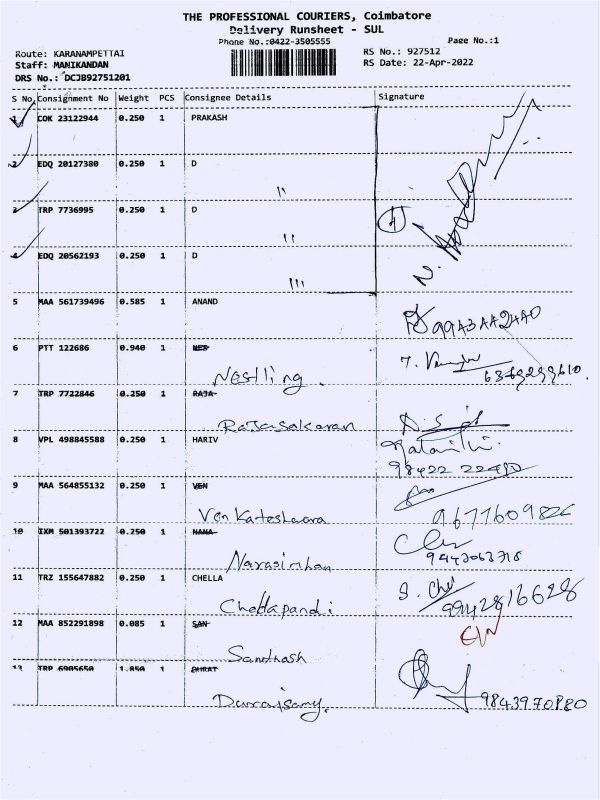 THE PROFESSIONAL COURIERS, Coimbatore
Delivery Runsheet - SUL
Phone No.:0422-3505555 Page No.:1
Route: KARANAMPETTAI RS No.: 927512
Staff: MANIKANDAN RS Date: 22-Apr-2022
DRS No.: DCJB92751201
S No. Consignment No Weight PCS Consignee Details Signature
1 COK 23122944 0.250 1 PRAKASH
2 EDQ 20127380 0.250 1 D
3 TRP 7736995 0.250 1 D
4
4 EDQ 20562193 0.250 1 D
5 MAA 561739496 0.585 1 ANAND
6 PTT 122686 0.940 1 NES
Nestling.
6369299610.
7 TRP 7722846 0.250 1 RAJA
RaJasakaran
8 VPL 498845588 0.250 1 HARIV
98422 22480
9 MAA 564855132 0.250 1 VEN
VenKateshwara
10 IXM 501393722 0.250 1 NANA
Narasimhan
9442063718
11 TRZ 155647882 0.250 1 CHELLA
Chellapandi
9942816628
12 MAA 852291898 0.085 1 SAN
Santhosh
13 TRP 6905650 1.850 1
Duraisamy.
9843970880